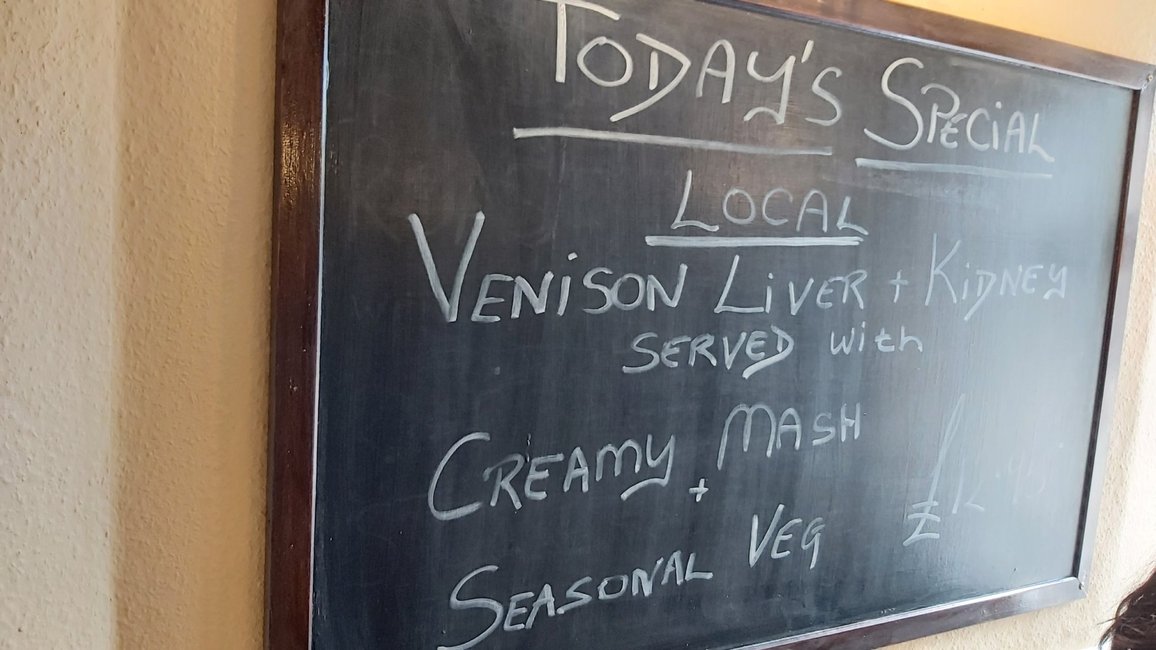 TODAY'S SPECIAL
LOCAL
VENISON LIVER + KIDNEY
SERVED with
CREAMY MASH
+
SEASONAL VEG
£12.95